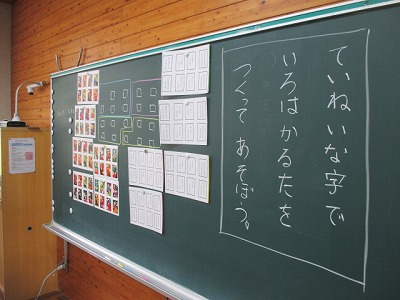 ていねいな字で
いろはかるたを
つくって あそぼう。